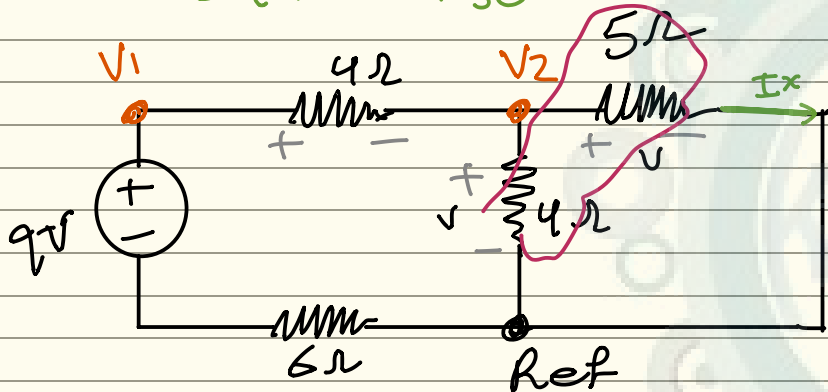 V1 4Ω V2 5Ω Ix
+ - + - + v
+ - 9V v 4Ω
6Ω Ref